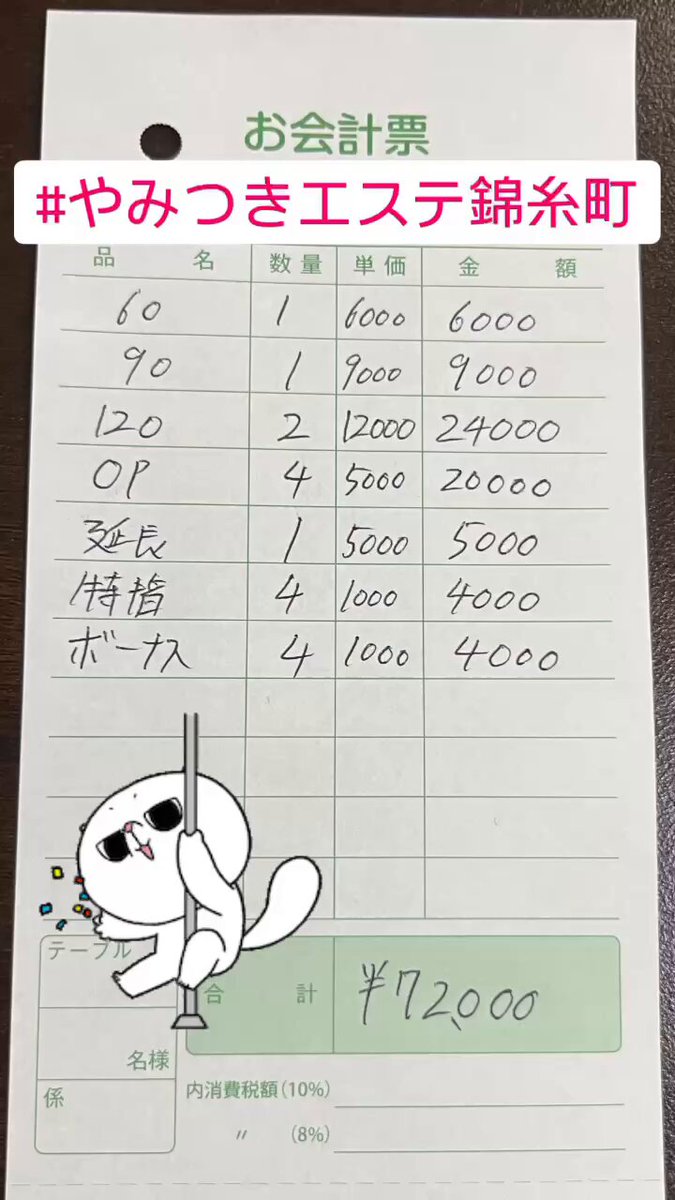 お会計票
#やみつきエステ錦糸町
品名 数量 単価 金額
60 1 6000 6000
90 1 9000 9000
120 2 12000 24000
OP 4 5000 20000
延長 1 5000 5000
特指 4 1000 4000
ボーナス 4 1000 4000
テーブル
合計 ¥72,000
名様
係
内消費税額(10%)
〃 (8%)